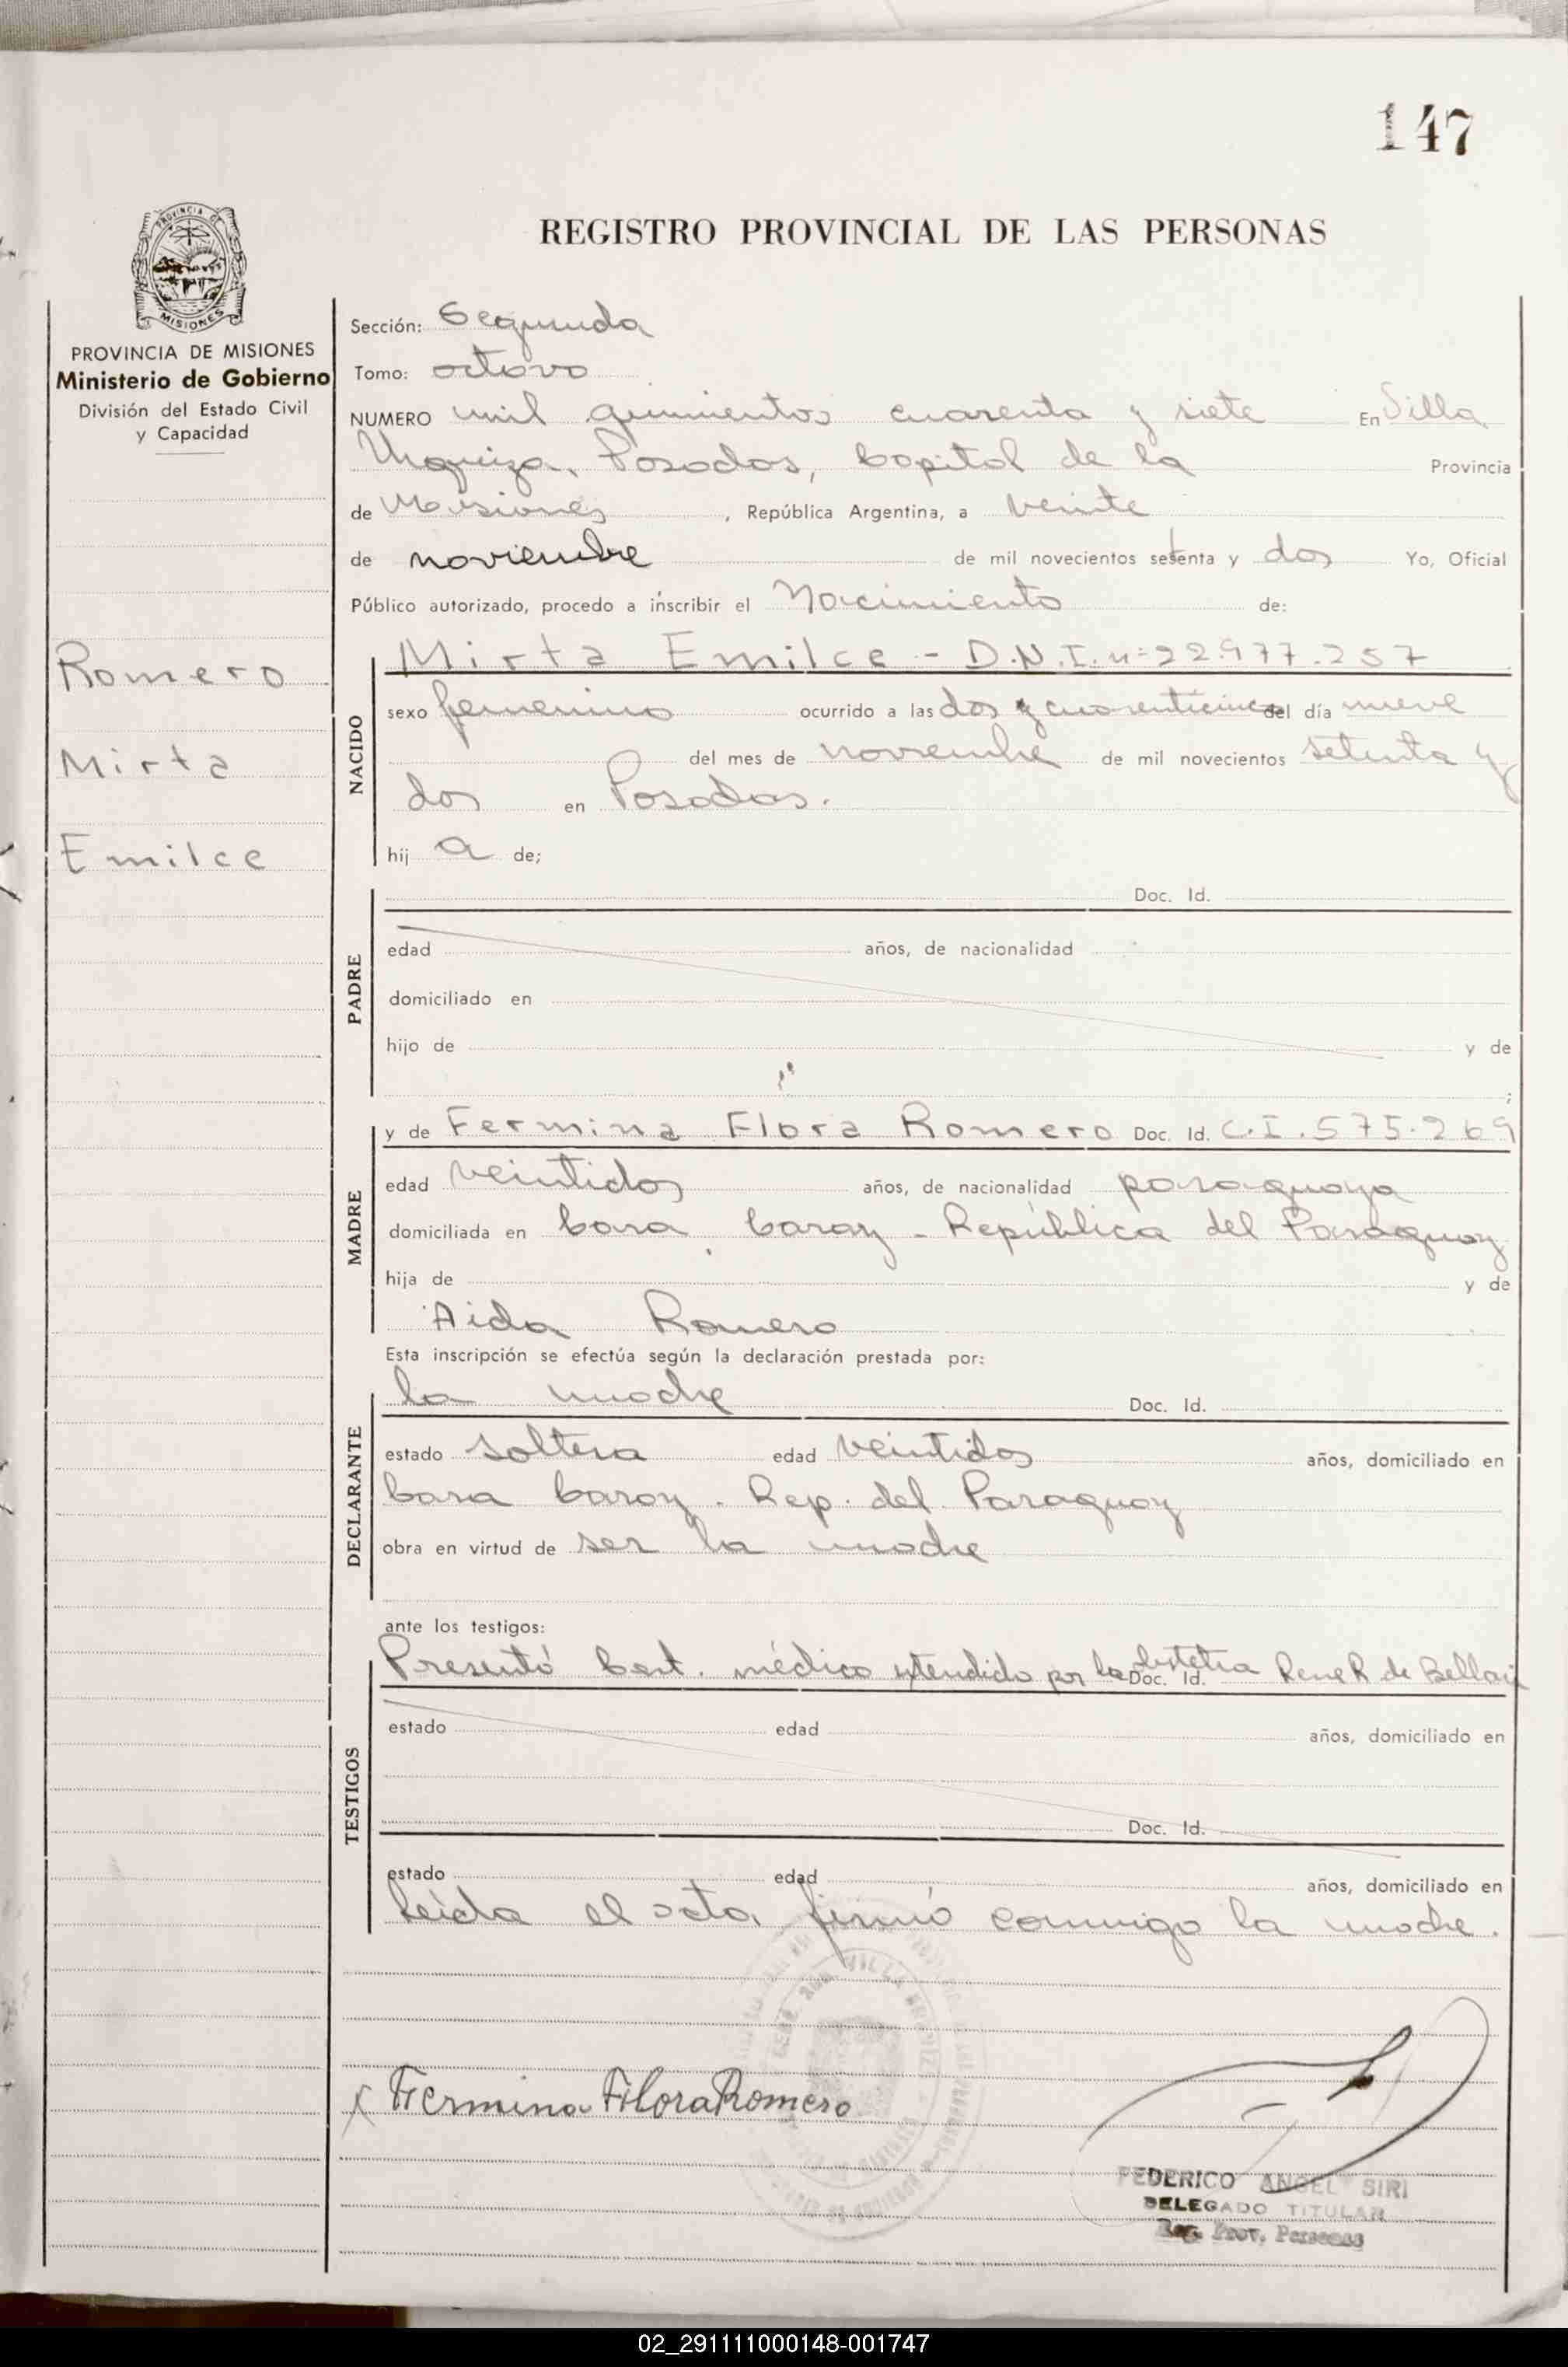 147
REGISTRO PROVINCIAL DE LAS PERSONAS
PROVINCIA DE
MISIONES
PROVINCIA DE MISIONES
Ministerio de Gobierno
División del Estado Civil
y Capacidad
Romero
Mirta
Emilce
Sección: Segunda
Tomo: octavo
NUMERO mil quinientos cuarenta y siete En Villa
Urquiza, Posadas, Capital de la Provincia
de Misiones, República Argentina, a veinte
de noviembre de mil novecientos setenta y dos Yo, Oficial
Público autorizado, procedo a inscribir el Nacimiento de:
NACIDO
Mirta Emilce - D.N.I. nº 22.977.257
sexo femenino ocurrido a las dos y cuarenticinco del día nueve
del mes de noviembre de mil novecientos setenta y
dos en Posadas.
hij a de;
PADRE
Doc. Id.
edad años, de nacionalidad
domiciliado en
hijo de y de
;
MADRE
y de Fermina Flora Romero Doc. Id. C.I. 575.269
edad veintidos años, de nacionalidad paraguaya
domiciliada en Cara Caray - República del Paraguay
hija de y de
Aida Romero
Esta inscripción se efectúa según la declaración prestada por:
DECLARANTE
la madre Doc. Id.
estado soltera edad veintidos años, domiciliado en
Cara Caray. Rep. del Paraguay
obra en virtud de ser la madre
ante los testigos:
TESTIGOS
Presentó Cert. médico extendido por la obstetra Doc. Id. Rene R. de
estado edad años, domiciliado en
Doc. Id.
estado edad años, domiciliado en
Leída el acta, firmó conmigo la madre.
VILLA URQUIZA
x Fermina Flora Romero
FEDERICO ANGEL SIRI
DELEGADO TITULAR
Reg. Prov. Personas
02_291111000148-001747